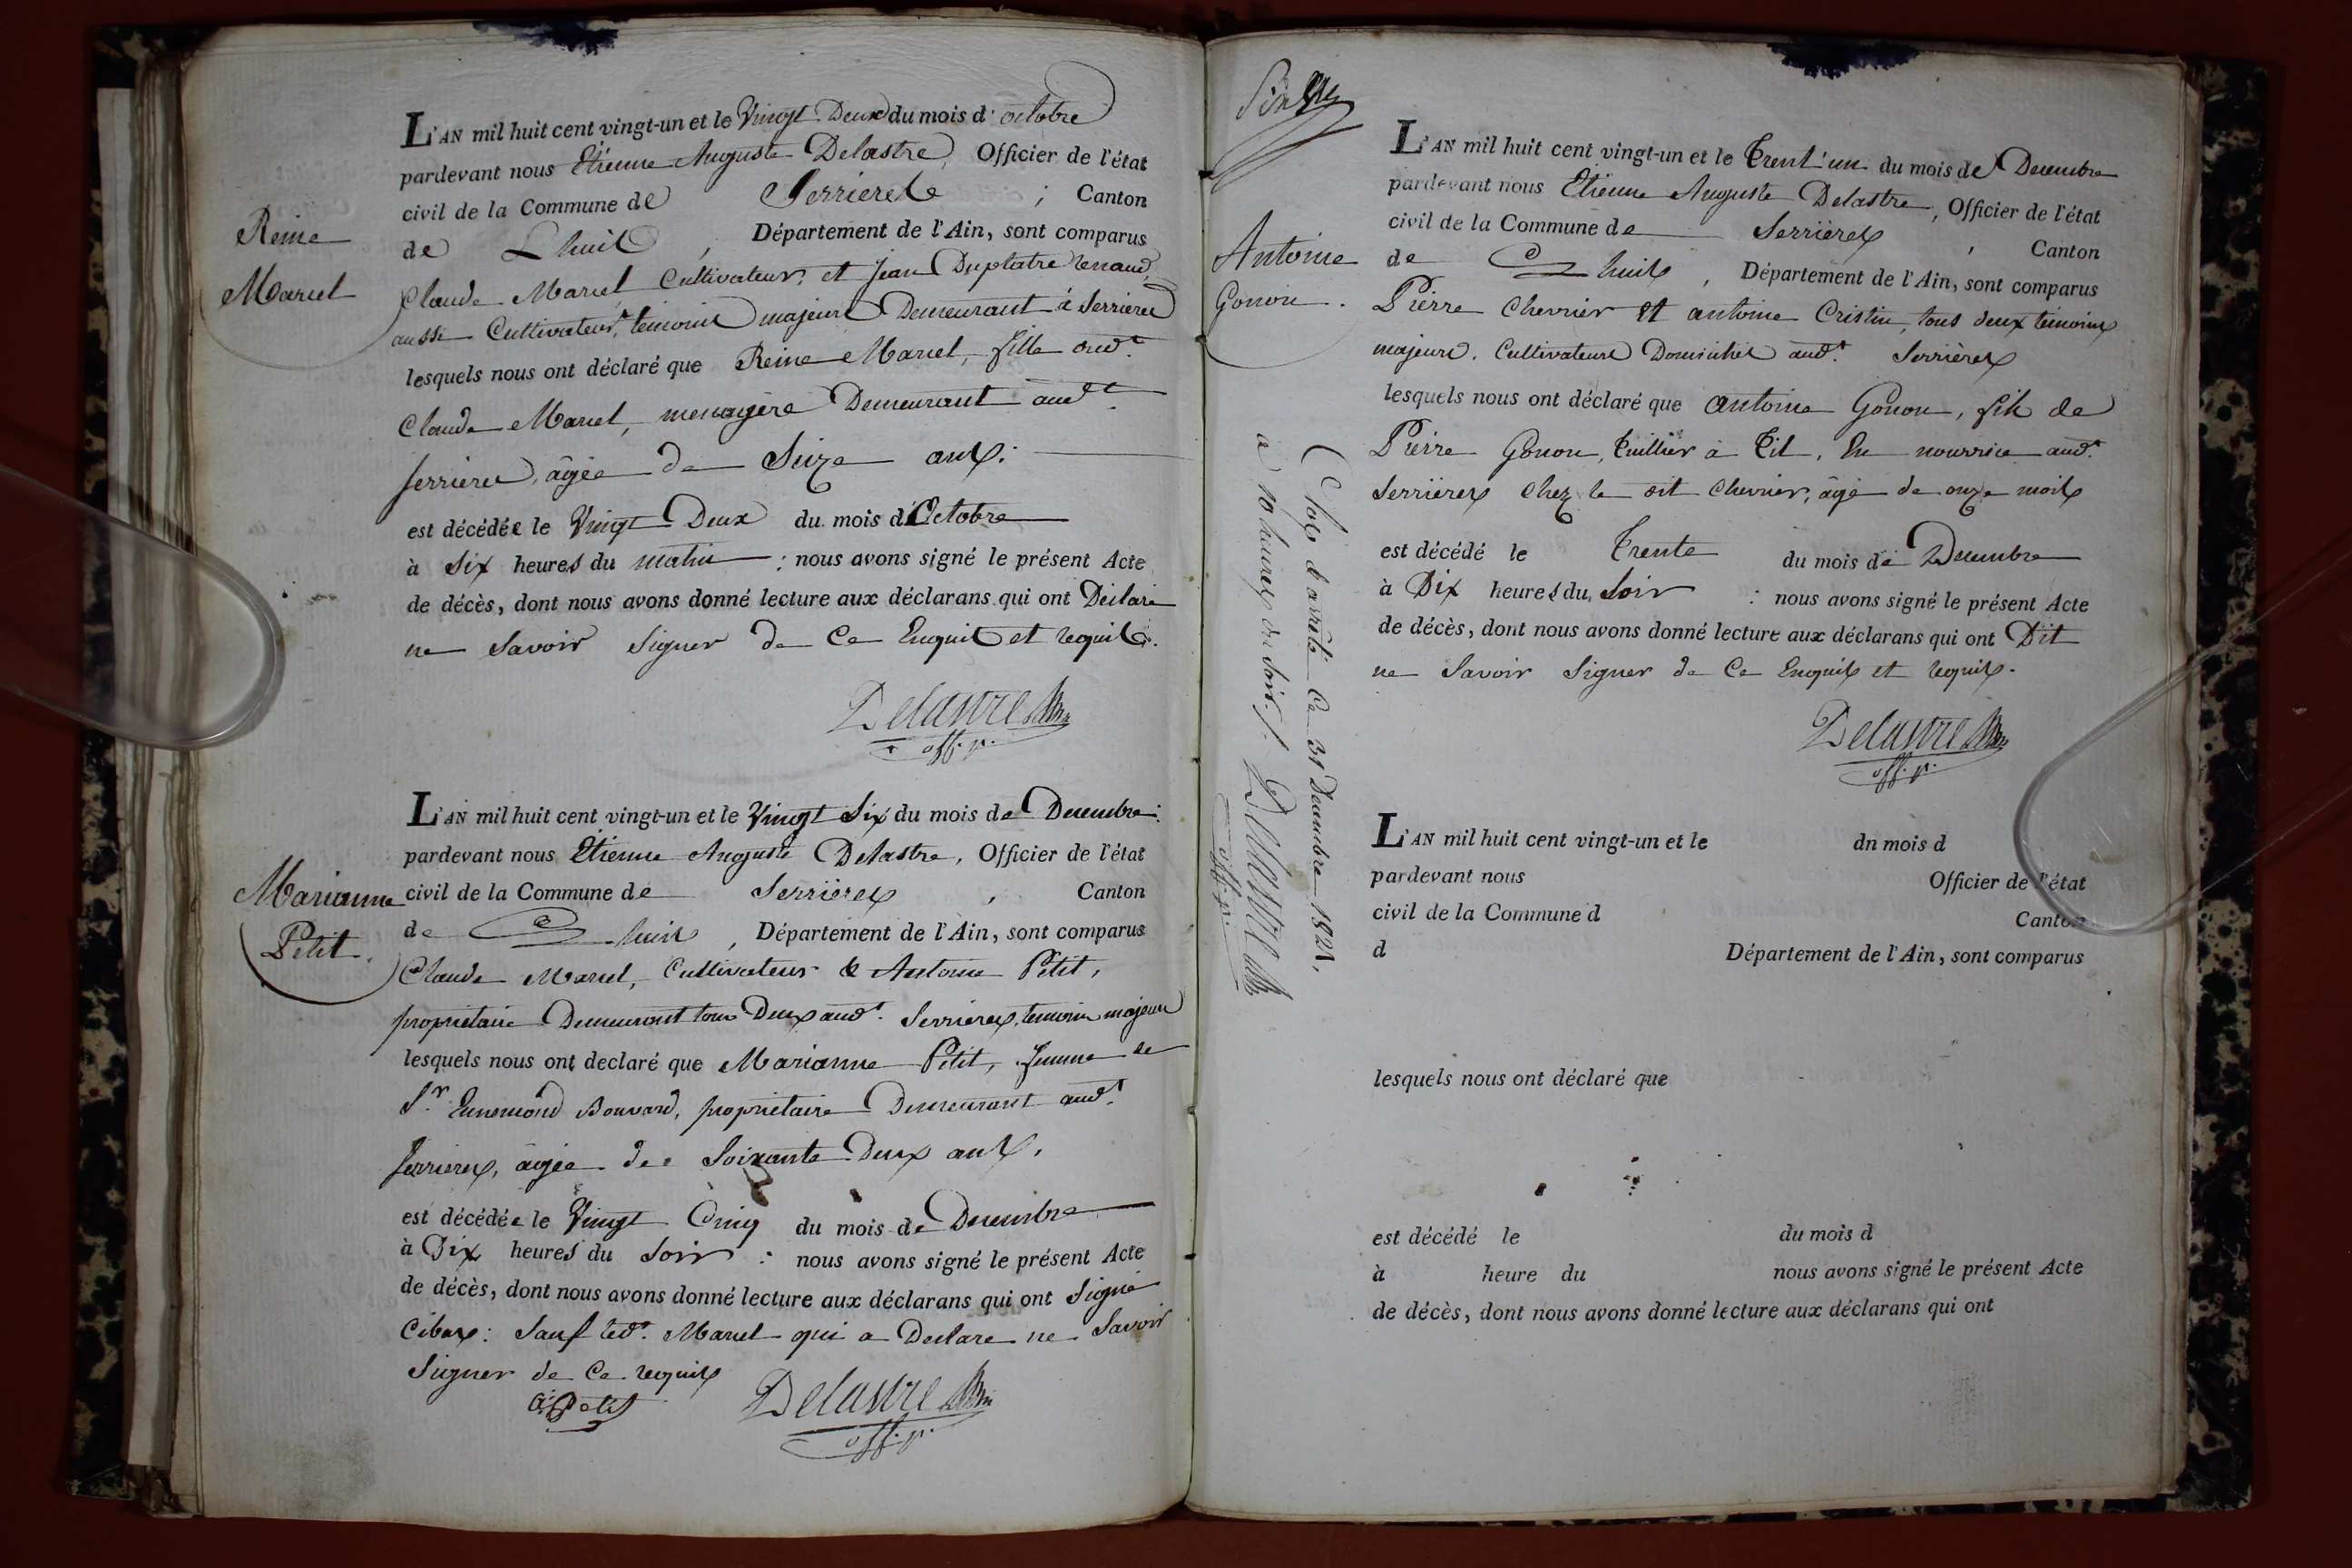 Reine
Marcel
L'AN mil huit cent vingt-un et le Vingt Deux du mois d'octobre
pardevant nous Etienne Auguste Delastre, Officier de l'état
civil de la Commune de Serrieres ; Canton
de Lhuis , Département de l'Ain, sont comparus
Claude Marcel Cultivateur, et Jean Duplatre renaud,
aussi Cultivateur, temoins majeurs Demeurant à Serrieres
lesquels nous ont déclaré que Reine Marcel, fille aud.t
Claude Marcel, menagère Demeurant aud.t
Serrieres, âgée de Seize ans.
est décédée le Vingt Deux du mois d'Octobre
à Six heures du matin : nous avons signé le présent Acte
de décès, dont nous avons donné lecture aux déclarans qui ont Déclaré
ne Savoir Signer de Ce Enquis et requis.
Delastre
off. p.
Marianne
Petit.
L'AN mil huit cent vingt-un et le Vingt Six du mois de Decembre
pardevant nous Etienne Auguste Delastre, Officier de l'état
civil de la Commune de Serrières , Canton
de Lhuis , Département de l'Ain, sont comparus
Claude Marcel, Cultivateur & Antoine Petit,
proprietaire Demeurant tous Deux aud.t Serrieres, temoins majeurs
lesquels nous ont declaré que Marianne Petit, femme de
S.r Ennemond Bouvard, proprietaire Demeurant aud.t
Serrieres, âgée de Soixante Deux ans.
est décédée le Vingt Cinq du mois de Decembre
à Dix heures du Soir : nous avons signé le présent Acte
de décès, dont nous avons donné lecture aux déclarans qui ont Signé
Cibas: Sauf led.t Marcel qui a Declare ne Savoir
Signer de Ce requis
Petit
Delastre
off. p.
Antoine
Gonon.
L'AN mil huit cent vingt-un et le Trent'un du mois de Decembre
pardevant nous Etienne Auguste Delastre, Officier de l'état
civil de la Commune de Serrières , Canton
de Lhuis , Département de l'Ain, sont comparus
Pierre Chevrier et antoine Cristin, tous deux temoins
majeurs. Cultivateurs Domiciliés aud.t Serrières
lesquels nous ont déclaré que antoine Gonon, fils de
Pierre Gonon, Tuillier à Til, En nourrice aud.t
Serrières Chez le dit Chevrier, âgé de onze mois
est décédé le Trente du mois de Decembre
à Dix heures du Soir : nous avons signé le présent Acte
de décès, dont nous avons donné lecture aux déclarans qui ont Dit
ne Savoir Signer de Ce Enquis et requis.
Delastre
off. p.
Clos & arrêté Ce 31 Decembre 1821,
à 10 heures du Soir./.
Delastre
off. p.
L'AN mil huit cent vingt-un et le dn mois d
pardevant nous Officier de l'état
civil de la Commune d Canton
d Département de l'Ain, sont comparus
lesquels nous ont déclaré que
est décédé le du mois d
à heure du nous avons signé le présent Acte
de décès, dont nous avons donné lecture aux déclarans qui ont